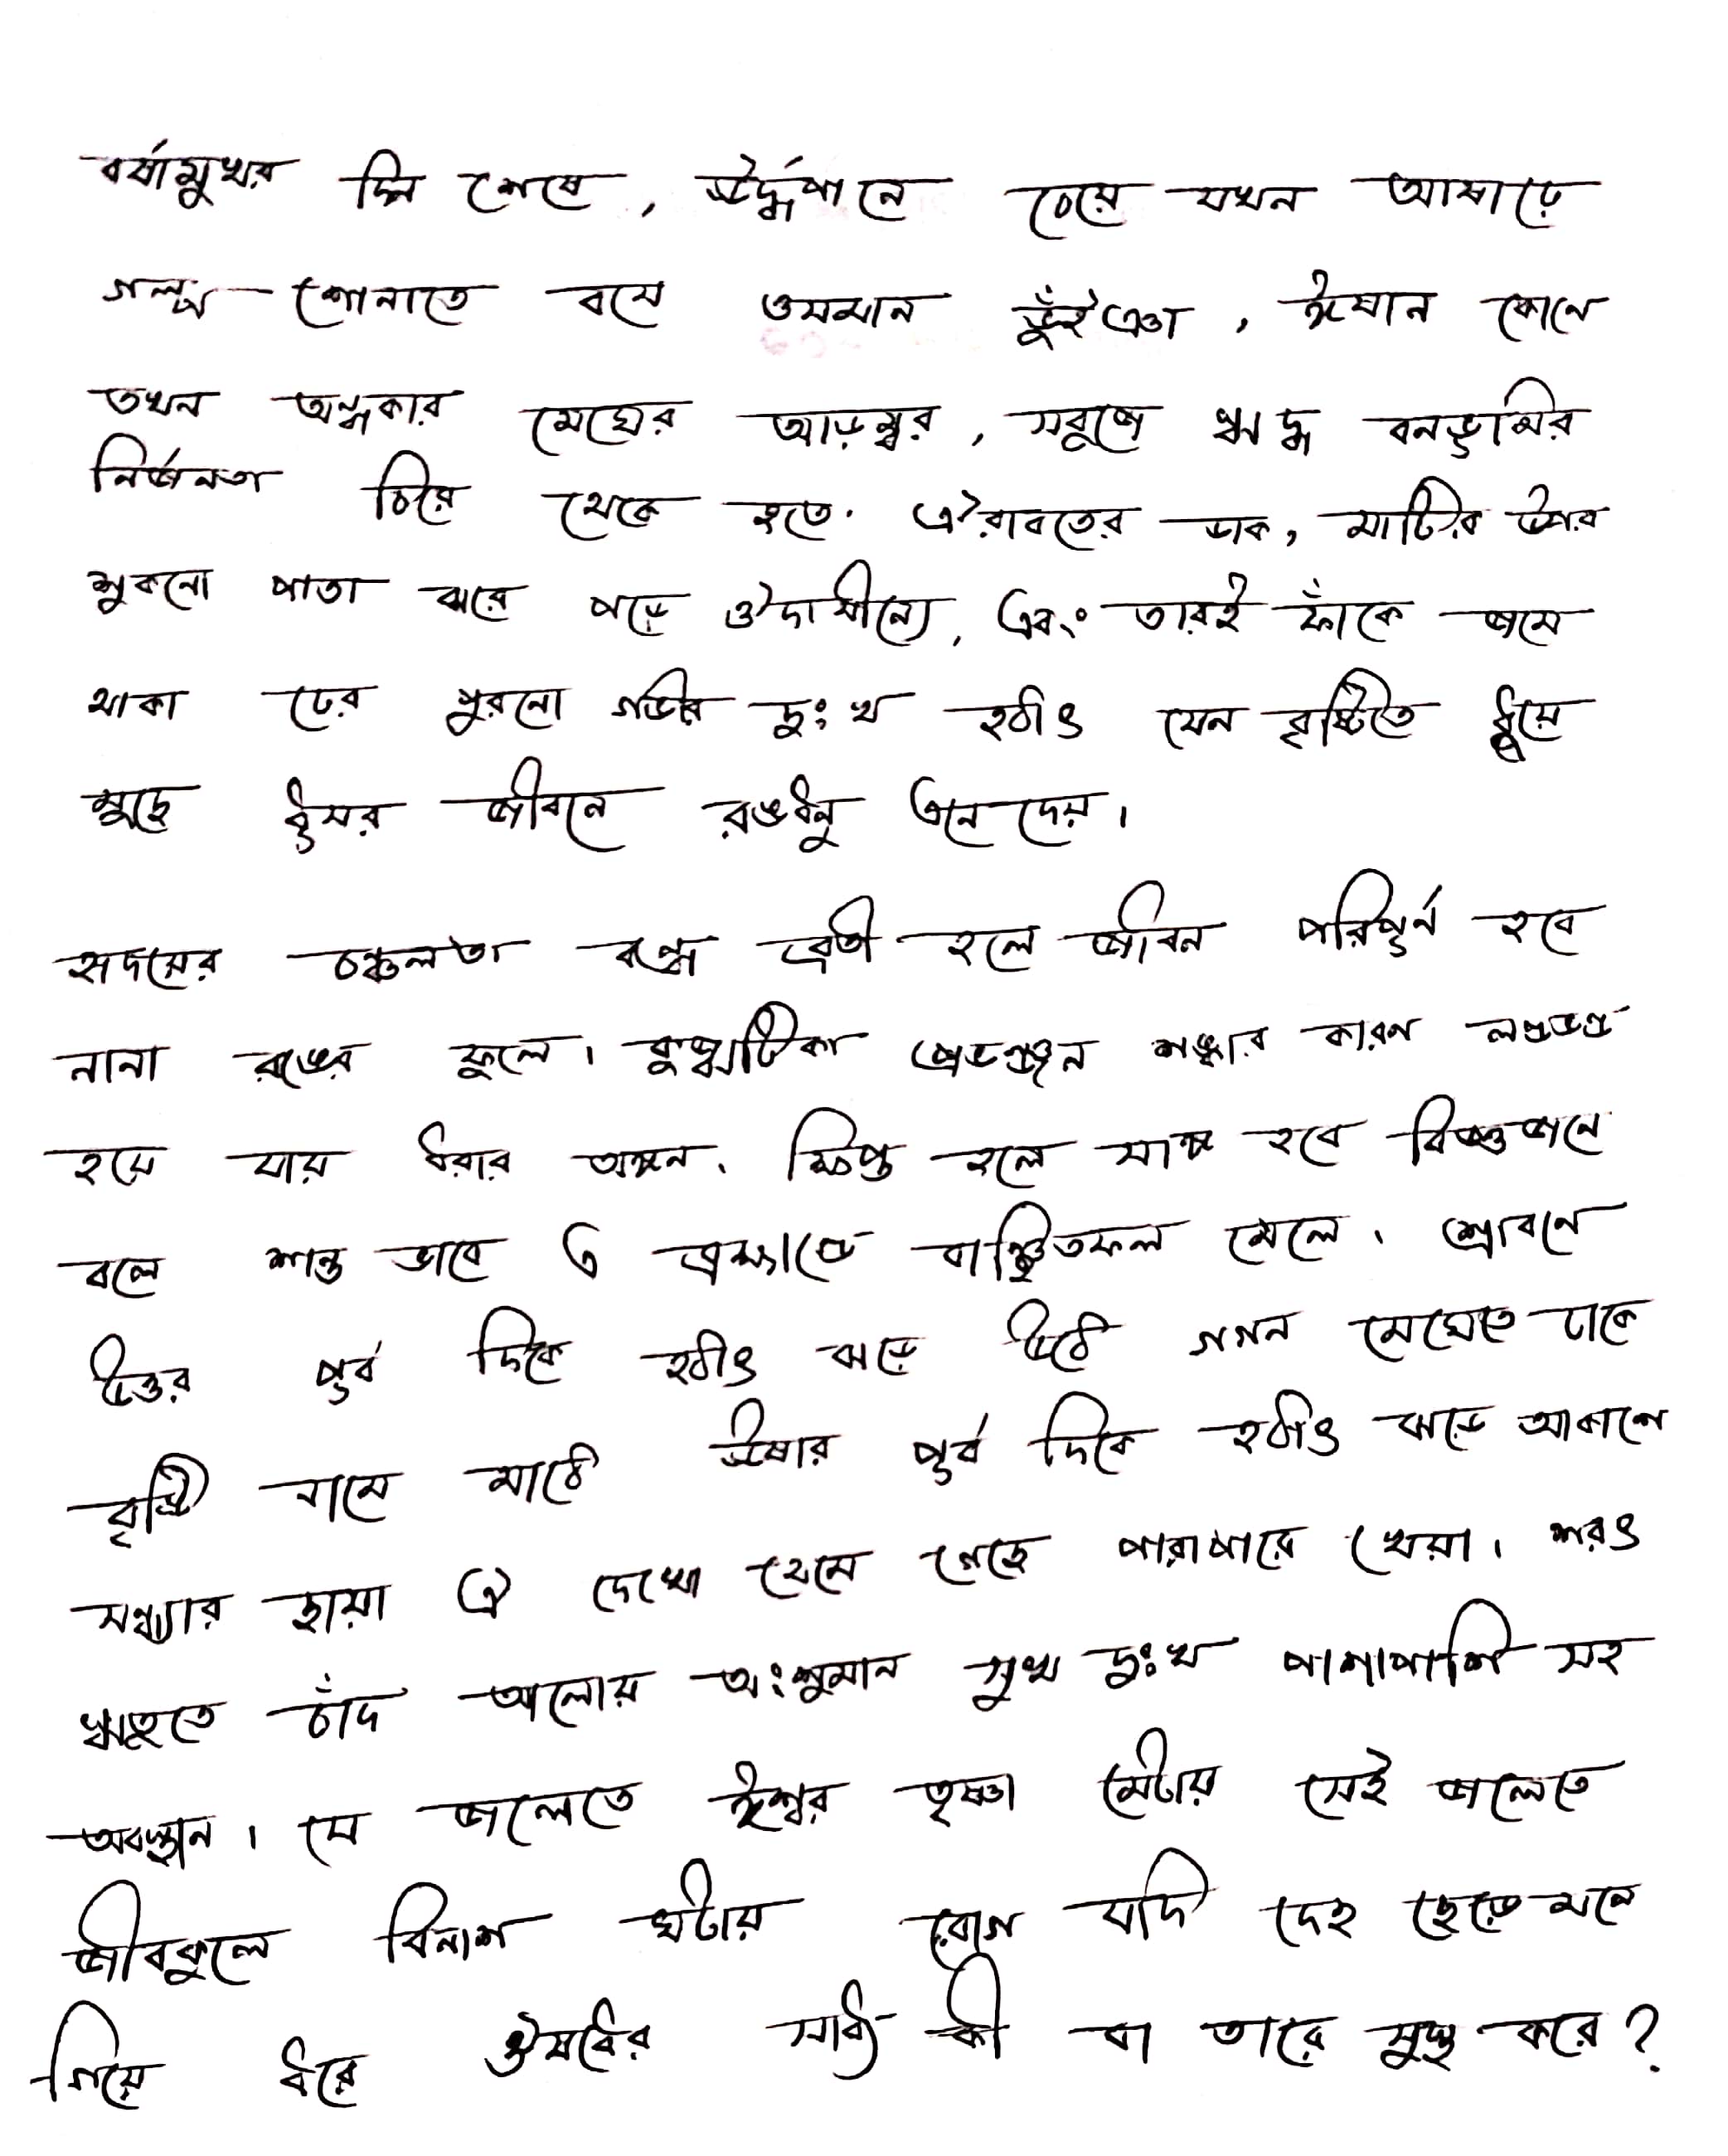 বর্ষামুখর দিন শেষে, ঊর্দ্ধপানে চেয়ে যখন আষাঢ়ে
গল্প শোনাতে বসে ওসমান ভুঁইঞা, ঈষান কোণে
তখন অন্ধকার মেঘের আড়ম্বর, সবুজে ঋদ্ধ বনভূমির
নির্জনতা চিরে থেকে থেকে ঐরাবতের ডাক, মাটির উপর
শুকনো পাতা ঝরে পড়ে ঔদাসীন্যে, এবং তারই ফাঁকে জমে
থাকা ঢের পুরনো গভীর দুঃখ হঠাৎ যেন বৃষ্টিতে ধুয়ে
মুছে ধূসর জীবনে রঙধনু এনে দেয়।
হৃদয়ের চঞ্চলতা বন্ধে ব্রতী হলে জীবন পরিপূর্ণ হবে
নানা রঙের ফুলে। কুজ্ঝটিকা প্রভঞ্জন শঙ্কার কারণ লণ্ডভণ্ড
হয়ে যায় ধরার অঙ্গন। ক্ষিপ্ত হলে সাঙ্গ হবে বিজ্ঞজনে
বলে শান্ত ভাবে এ ব্রহ্মাণ্ডে বাঞ্ছিতফল মেলে। শ্রাবণে
উত্তর পূর্ব দিকে হঠাৎ ঝড়ে উঠে গগন মেঘেতে ঢাকে
বৃষ্টি নামে মাঠে ঊষার পূর্ব দিকে হঠাৎ ঝড়ে আকাশে
সন্ধ্যার ছায়া ঐ দেখো থেমে গেছে পারাপারে খেয়া। শরৎ
ঋতুতে চাঁদ আলোয় অংশুমান সুখ দুঃখ পাশাপাশি সহ
অবস্থান। যে জলেতে ঈশ্বর তৃষ্ণা মেটায় সেই জলেতে
জীবকুলে বিনাশ ঘটায় রোগ যদি দেহ ছেড়ে মনে
গিয়ে ধরে ঔষধের সাধ্য কী বা তারে সুস্থ করে?